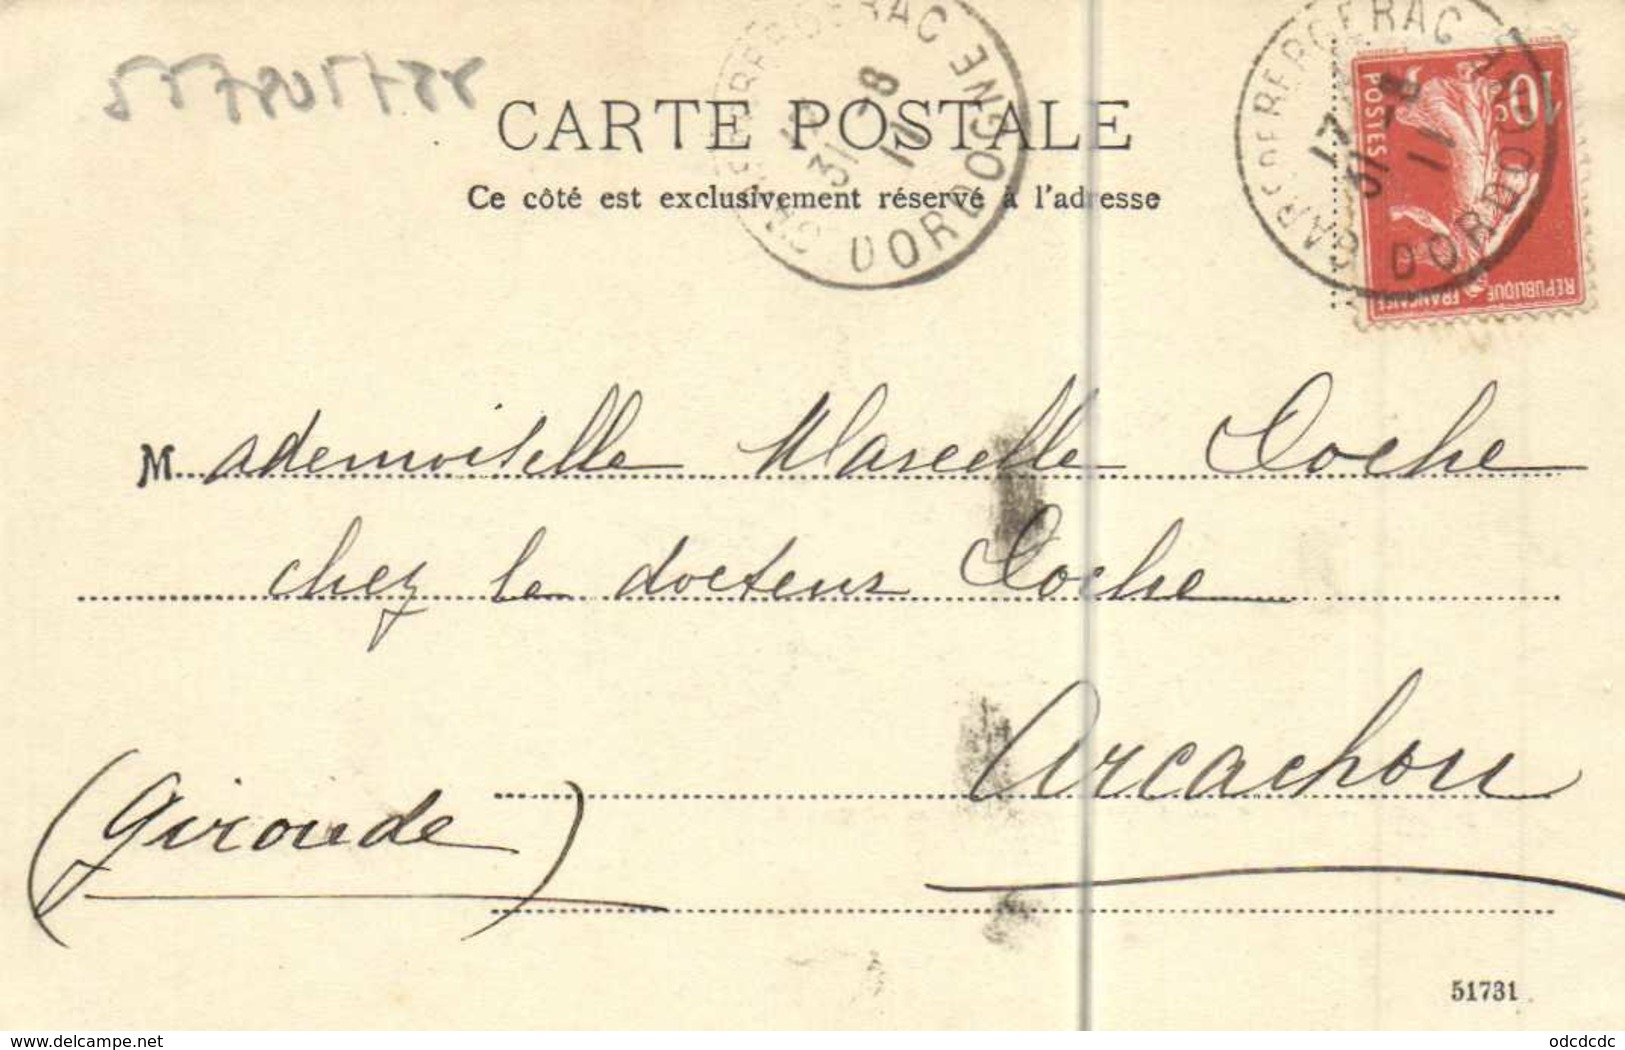 557805788
CARTE POSTALE
Ce côté est exclusivement réservé à l'adresse
GARE DE BERGERAC
DORDOGNE
31 -8
11
GARE DE BERGERAC
DORDOGNE
17
31 -8
11
10c
POSTES
REPUBLIQUE FRANÇAISE
Mademoiselle Marcelle Coche
chez le docteur Coche
Arcachon
(Gironde)
51731
www.delcampe.net
odcdcdc